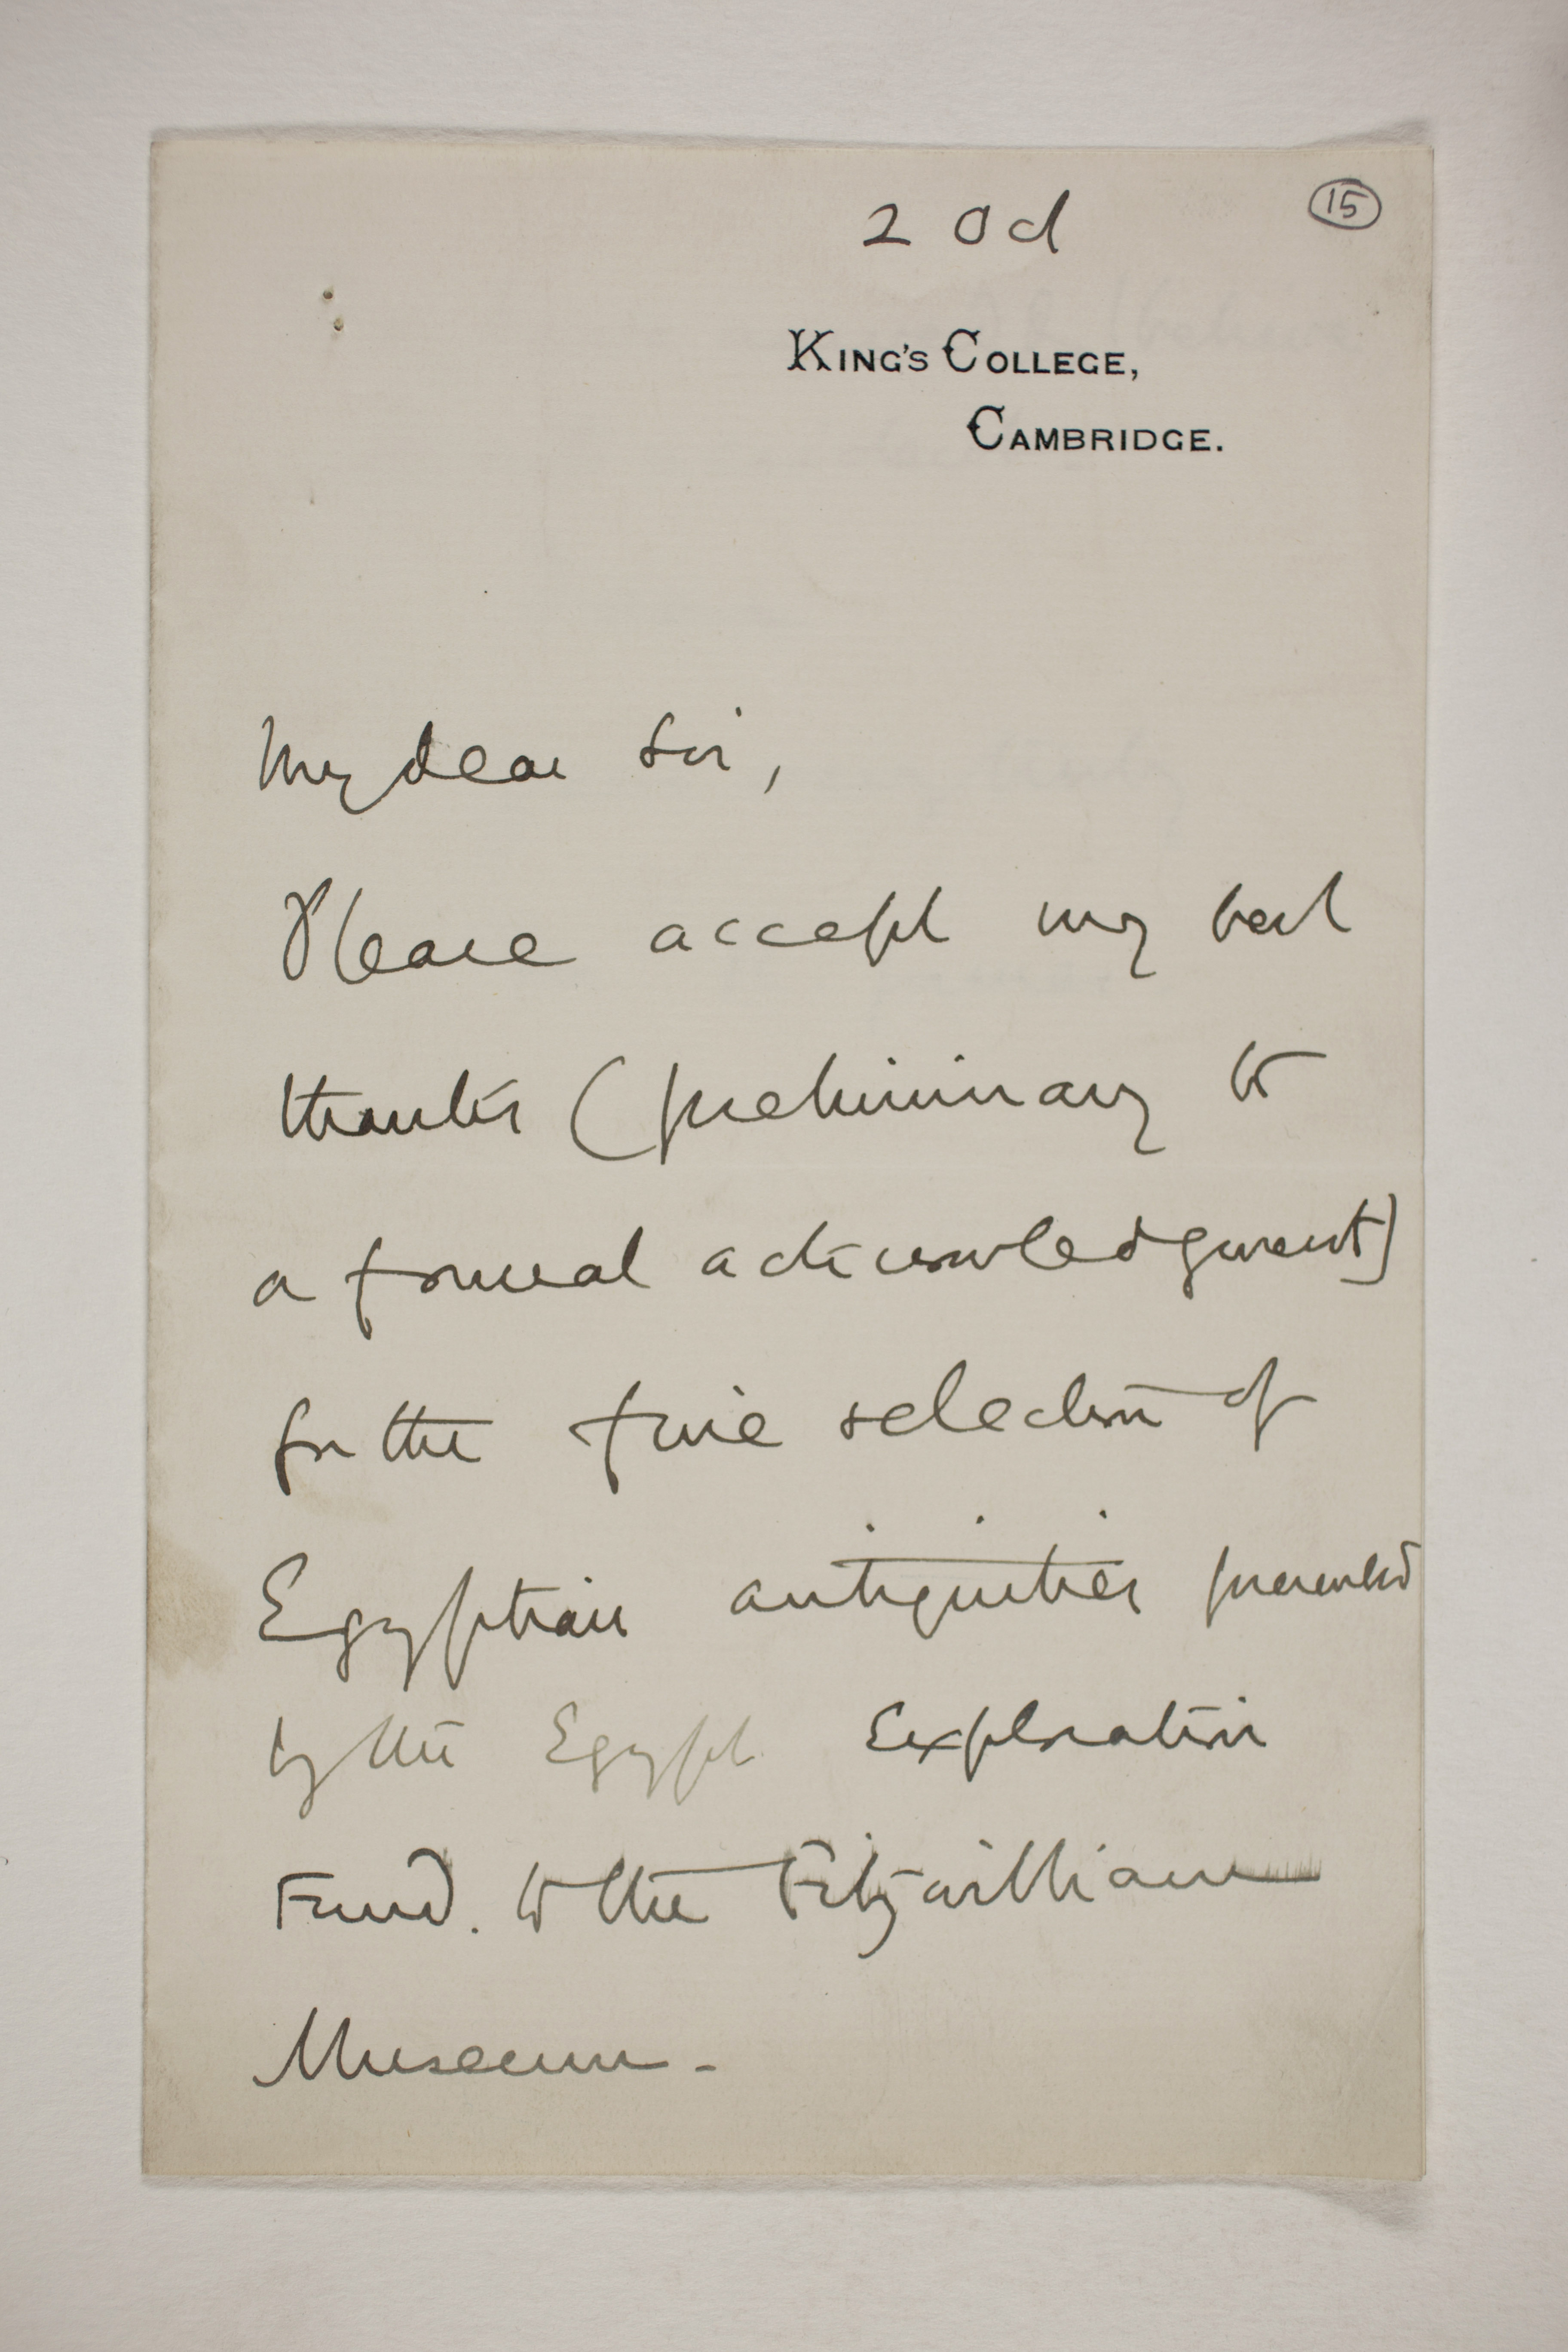 2 Oct
15
KING'S COLLEGE,
CAMBRIDGE.
My dear Sir,
Please accept my best
thanks (preliminary to
a formal acknowledgment)
for the fine selection of
Egyptian antiquities presented
by the Egypt Exploration
Fund. to the Fitzwilliam
Museum -